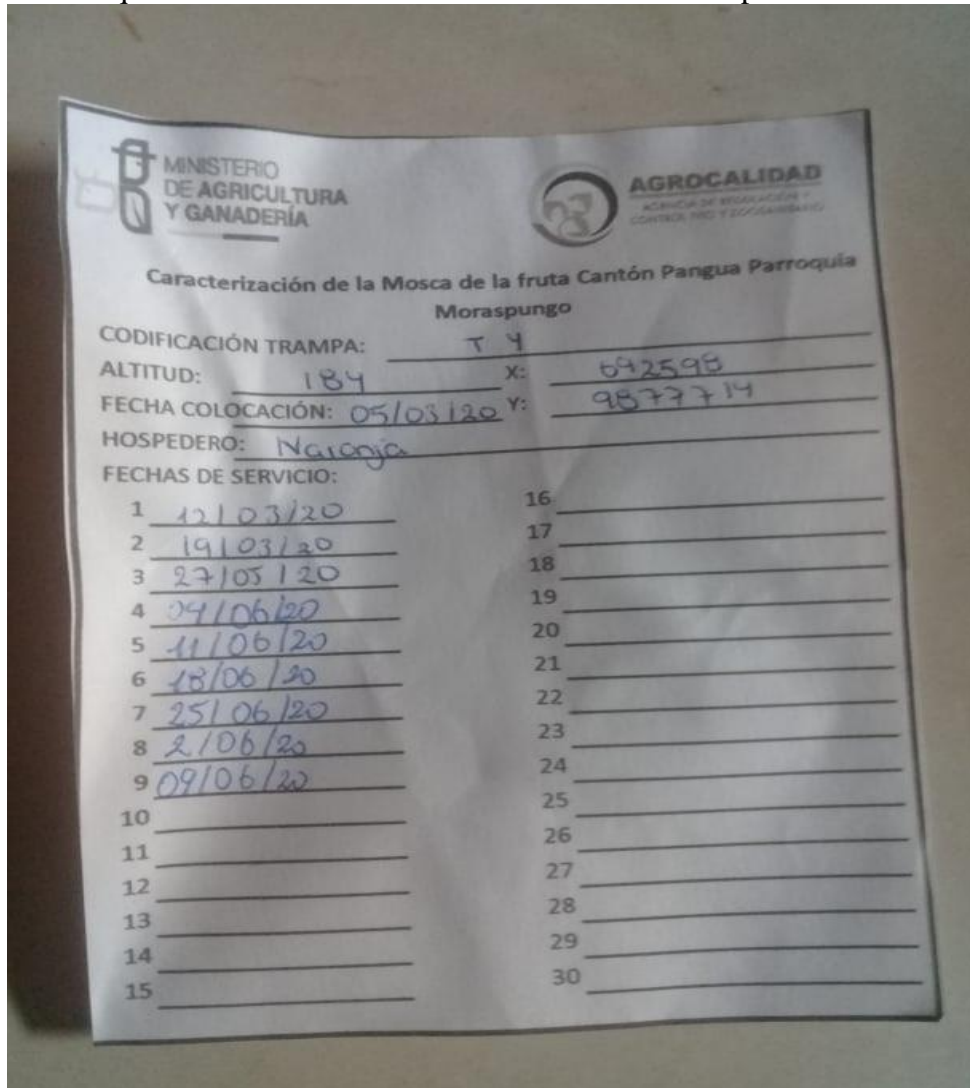 MINISTERIO
DE AGRICULTURA
Y GANADERÍA
AGROCALIDAD
AGENCIA DE REGULACIÓN Y
CONTROL FITO Y ZOOSANITARIO
Caracterización de la Mosca de la fruta Cantón Pangua Parroquia
Moraspungo
CODIFICACIÓN TRAMPA: T 4
ALTITUD: 184 X: 692598
FECHA COLOCACIÓN: 05/03/20 Y: 9877714
HOSPEDERO: Naranja
FECHAS DE SERVICIO:
1 12/03/20
2 19/03/20
3 27/05/20
4 04/06/20
5 11/06/20
6 18/06/20
7 25/06/20
8 2/06/20
9 09/06/20
10
11
12
13
14
15
16
17
18
19
20
21
22
23
24
25
26
27
28
29
30